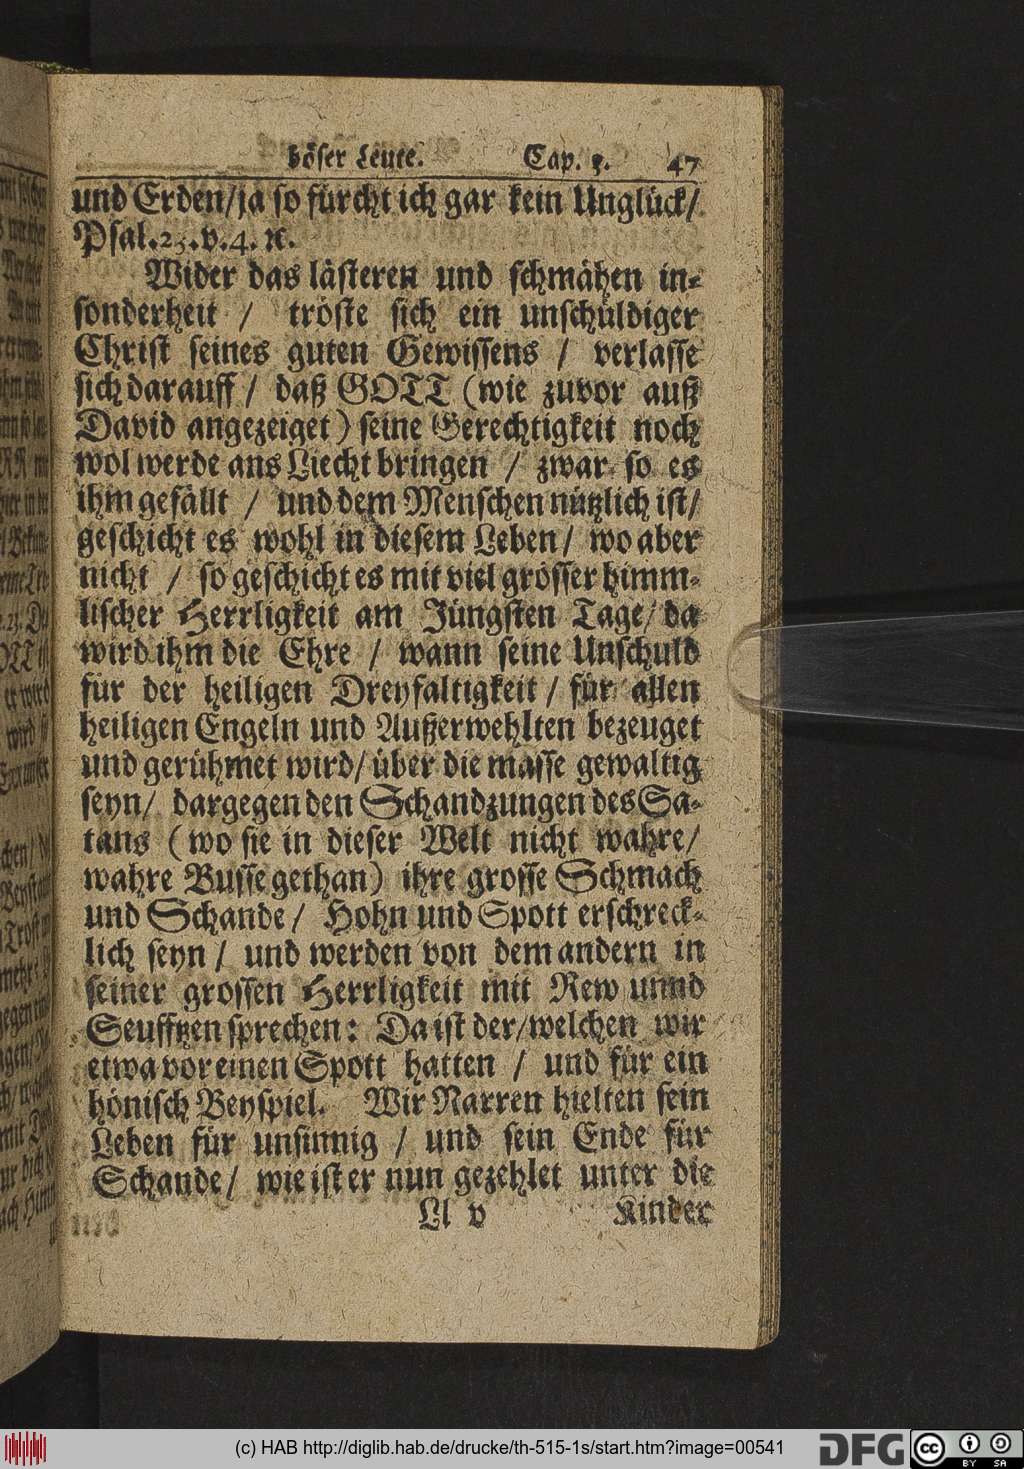 böser Leute. Cap. 3. 47
und Erden/ja so fürcht ich gar kein Unglück/
Psal. 23. v. 4. ꝛc.
Wider das lästeren und schmähen in-
sonderheit / tröste sich ein unschuldiger
Christ seines guten Gewissens / verlasse
sich darauff / daß GOTT (wie zuvor auß
David angezeiget) seine Gerechtigkeit noch
wol werde ans Liecht bringen / zwar so es
ihm gefällt / und dem Menschen nützlich ist/
geschicht es wohl in diesem Leben / wo aber
nicht / so geschicht es mit viel grösser himm-
lischer Herrligkeit am Jüngsten Tage/ da
wird ihm die Ehre / wann seine Unschuld
für der heiligen Dreyfaltigkeit / für allen
heiligen Engeln und Außerwehlten bezeuget
und gerühmet wird/ über die masse gewaltig
seyn/ dargegen den Schandzungen des Sa-
tans (wo sie in dieser Welt nicht wahre/
wahre Busse gethan) ihre grosse Schmach
und Schande/ Hohn und Spott erschreck-
lich seyn / und werden von dem andern in
seiner grossen Herrligkeit mit Rew unnd
Seufftzen sprechen: Da ist der/welchen wir
etwa vor einen Spott hatten / und für ein
hönisch Beyspiel. Wir Narren hielten sein
Leben für unsinnig / und sein Ende für
Schande/ wie ist er nun gezehlet unter die
Ll v Kinder
(c) HAB http://diglib.hab.de/drucke/th-515-1s/start.htm?image=00541 DFG cc BY SA